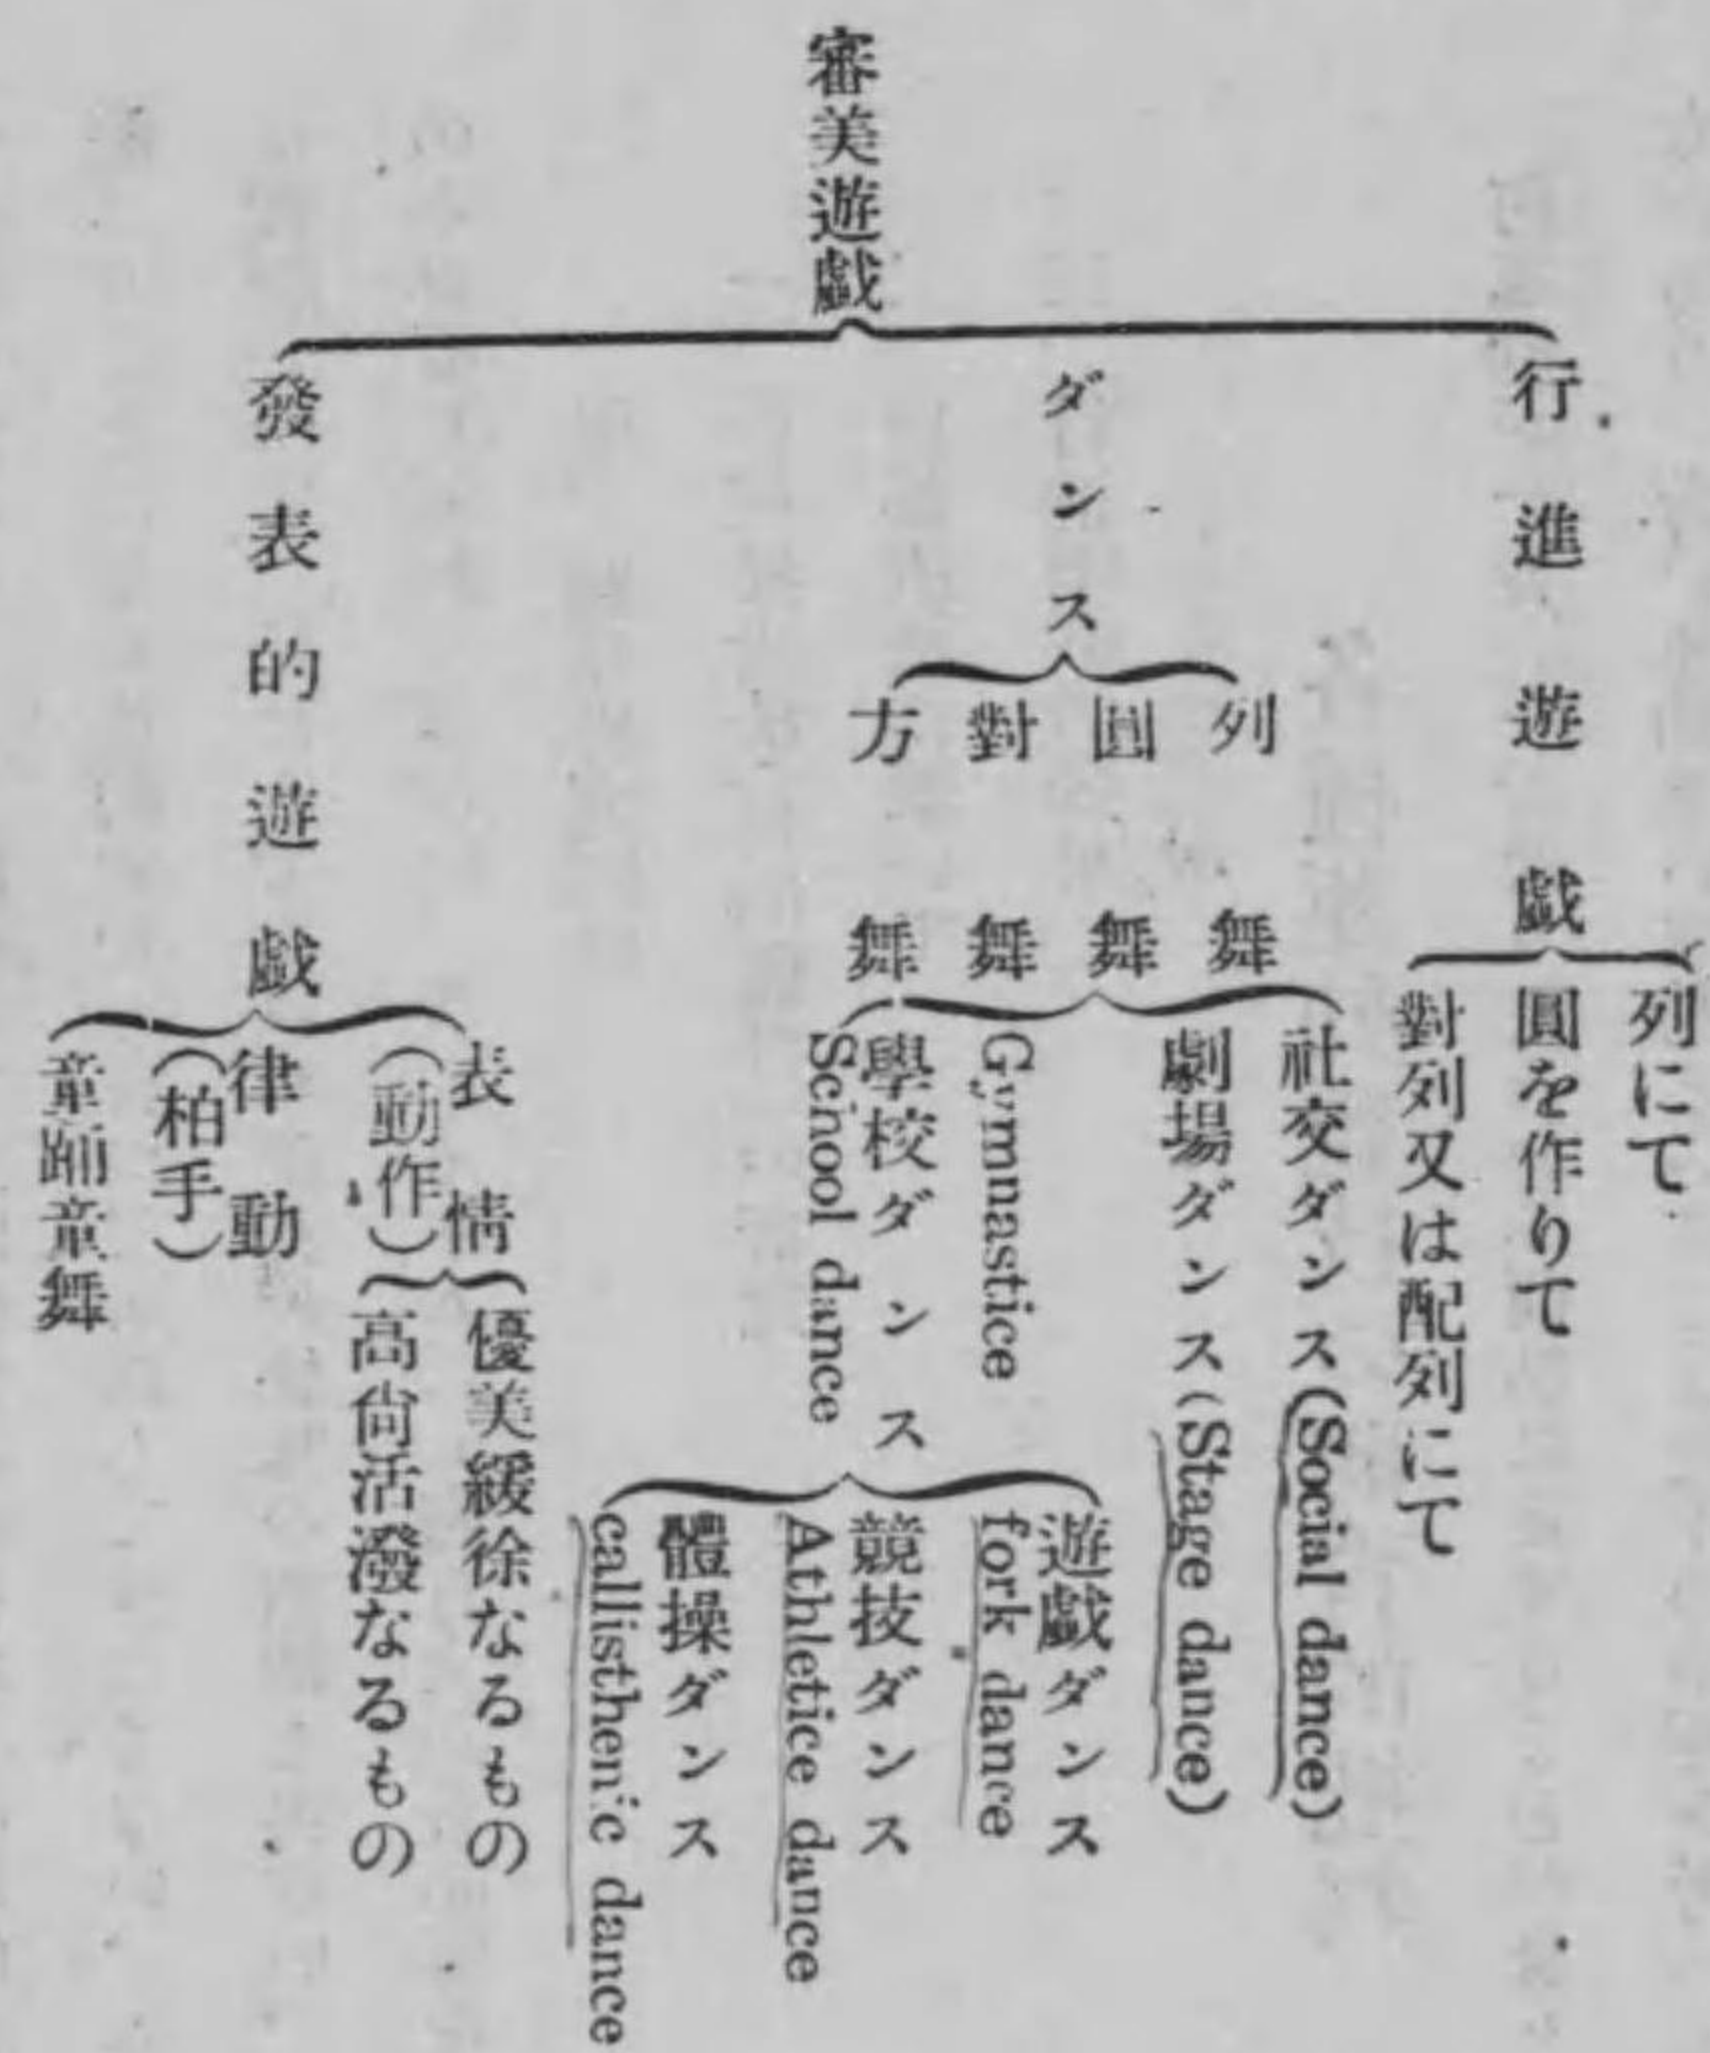 審美遊戯
行進遊戯
列にて
圓を作りて
對列又は配列にて
ダンス
列舞
圓舞
對舞
方舞
社交ダンス(Social dance)
劇場ダンス(Stage dance)
Gymnastice
學校ダンス
School dance
遊戯ダンス
fork dance
競技ダンス
Athletice dance
體操ダンス
callisthenic dance
發表的遊戯
表情
(動作)
優美緩徐なるもの
高尙活潑なるもの
律動
(柏手)
童踊童舞